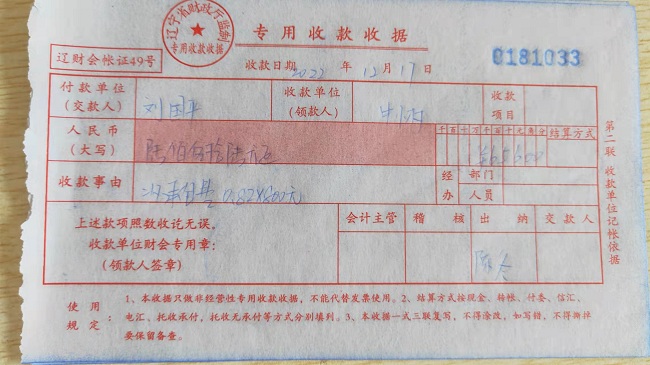 辽宁省财政厅监制
专用收款收据
专用收款收据
辽财会帐证49号
收款日期 2022 年 12 月 17 日
0181033
付款单位
(交款人)
刘国平
收款单位
(领款人)
收款
项目
人民币
(大写)
陆佰
千百十万千百十元角分
结算方式
¥65600
收款事由
0.82X800元
经 部门
办 人员
上述款项照数收讫无误。
收款单位财会专用章:
(领款人签章)
会计主管
稽核
出纳
交款人
第二联 收款单位记帐依据
使用
规定:
1、本收据只做非经营性专用收款收据,不能代替发票使用。2、结算方式按现金、转帐、付委、信汇、
电汇、托收承付、托收无承付等方式分别填列。3、本收据一式三联复写,不得涂改,如写错,不得撕掉
要保留备查。